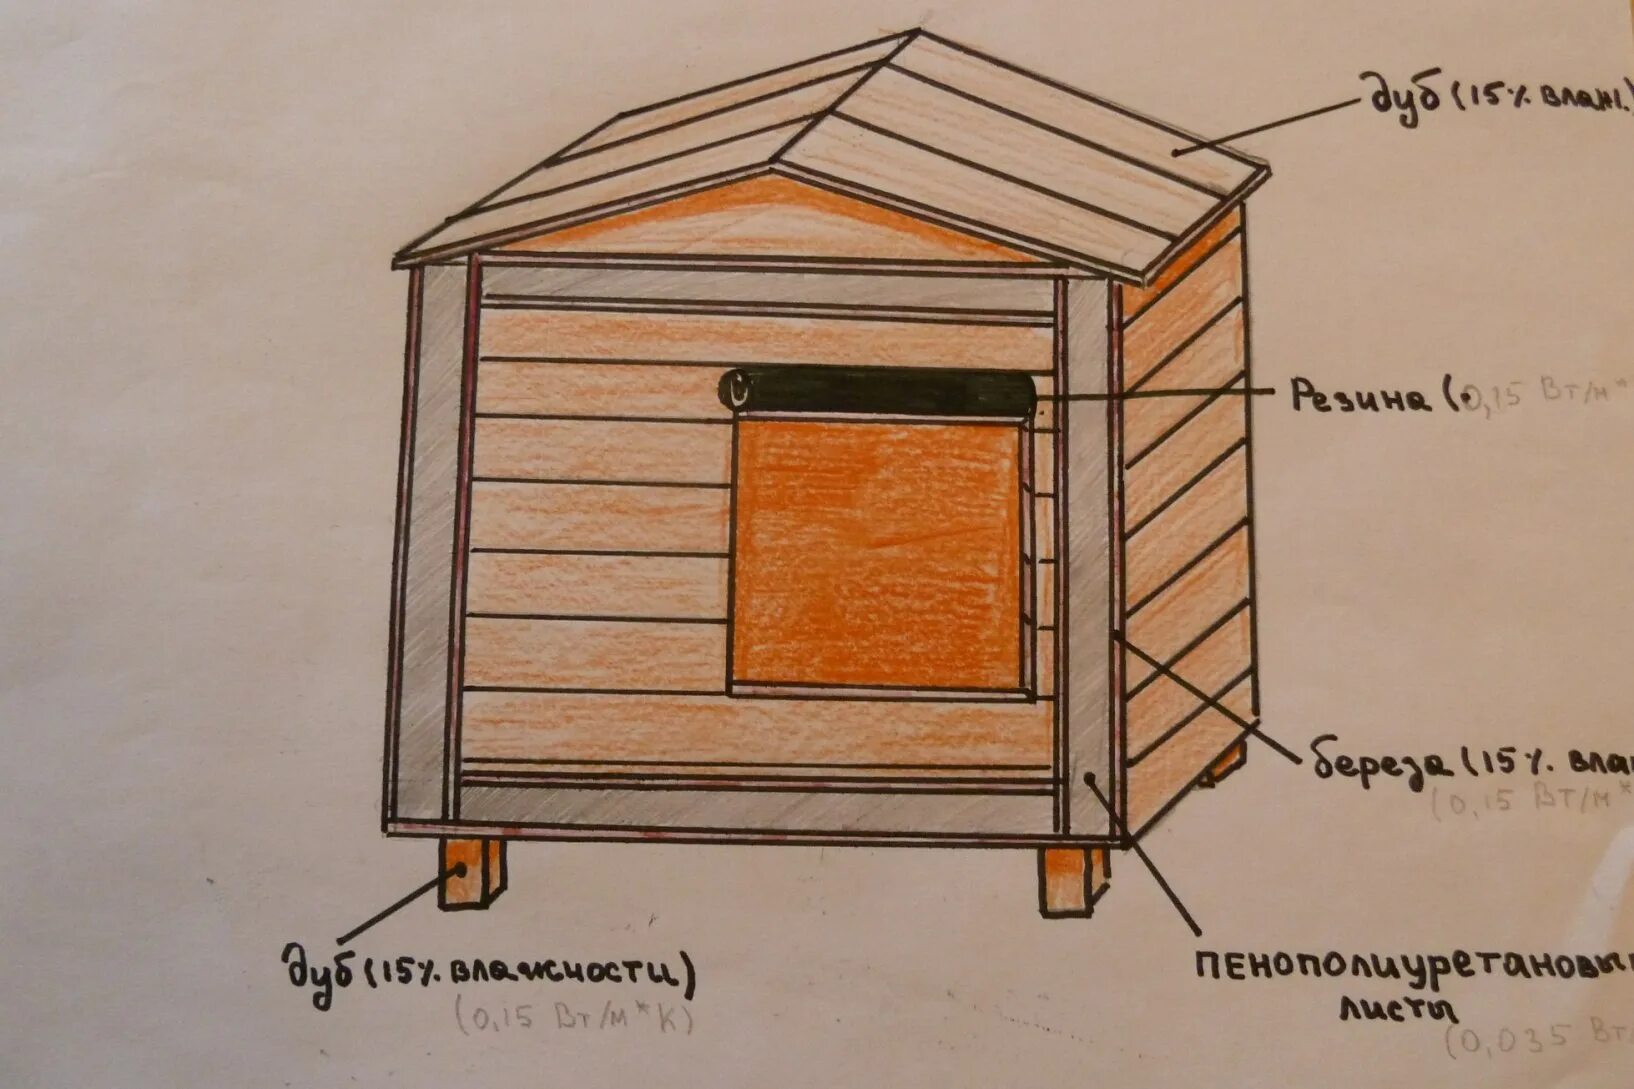 дуб (15% влаж.)
Резина (0,15 Вт/м*
береза (15% вла
(0,15 Вт/м*
дуб (15% влажности)
(0,15 Вт/м*К)
ПЕНОПОЛИУРЕТАНОВЫ
листы
(0,035 Вт/